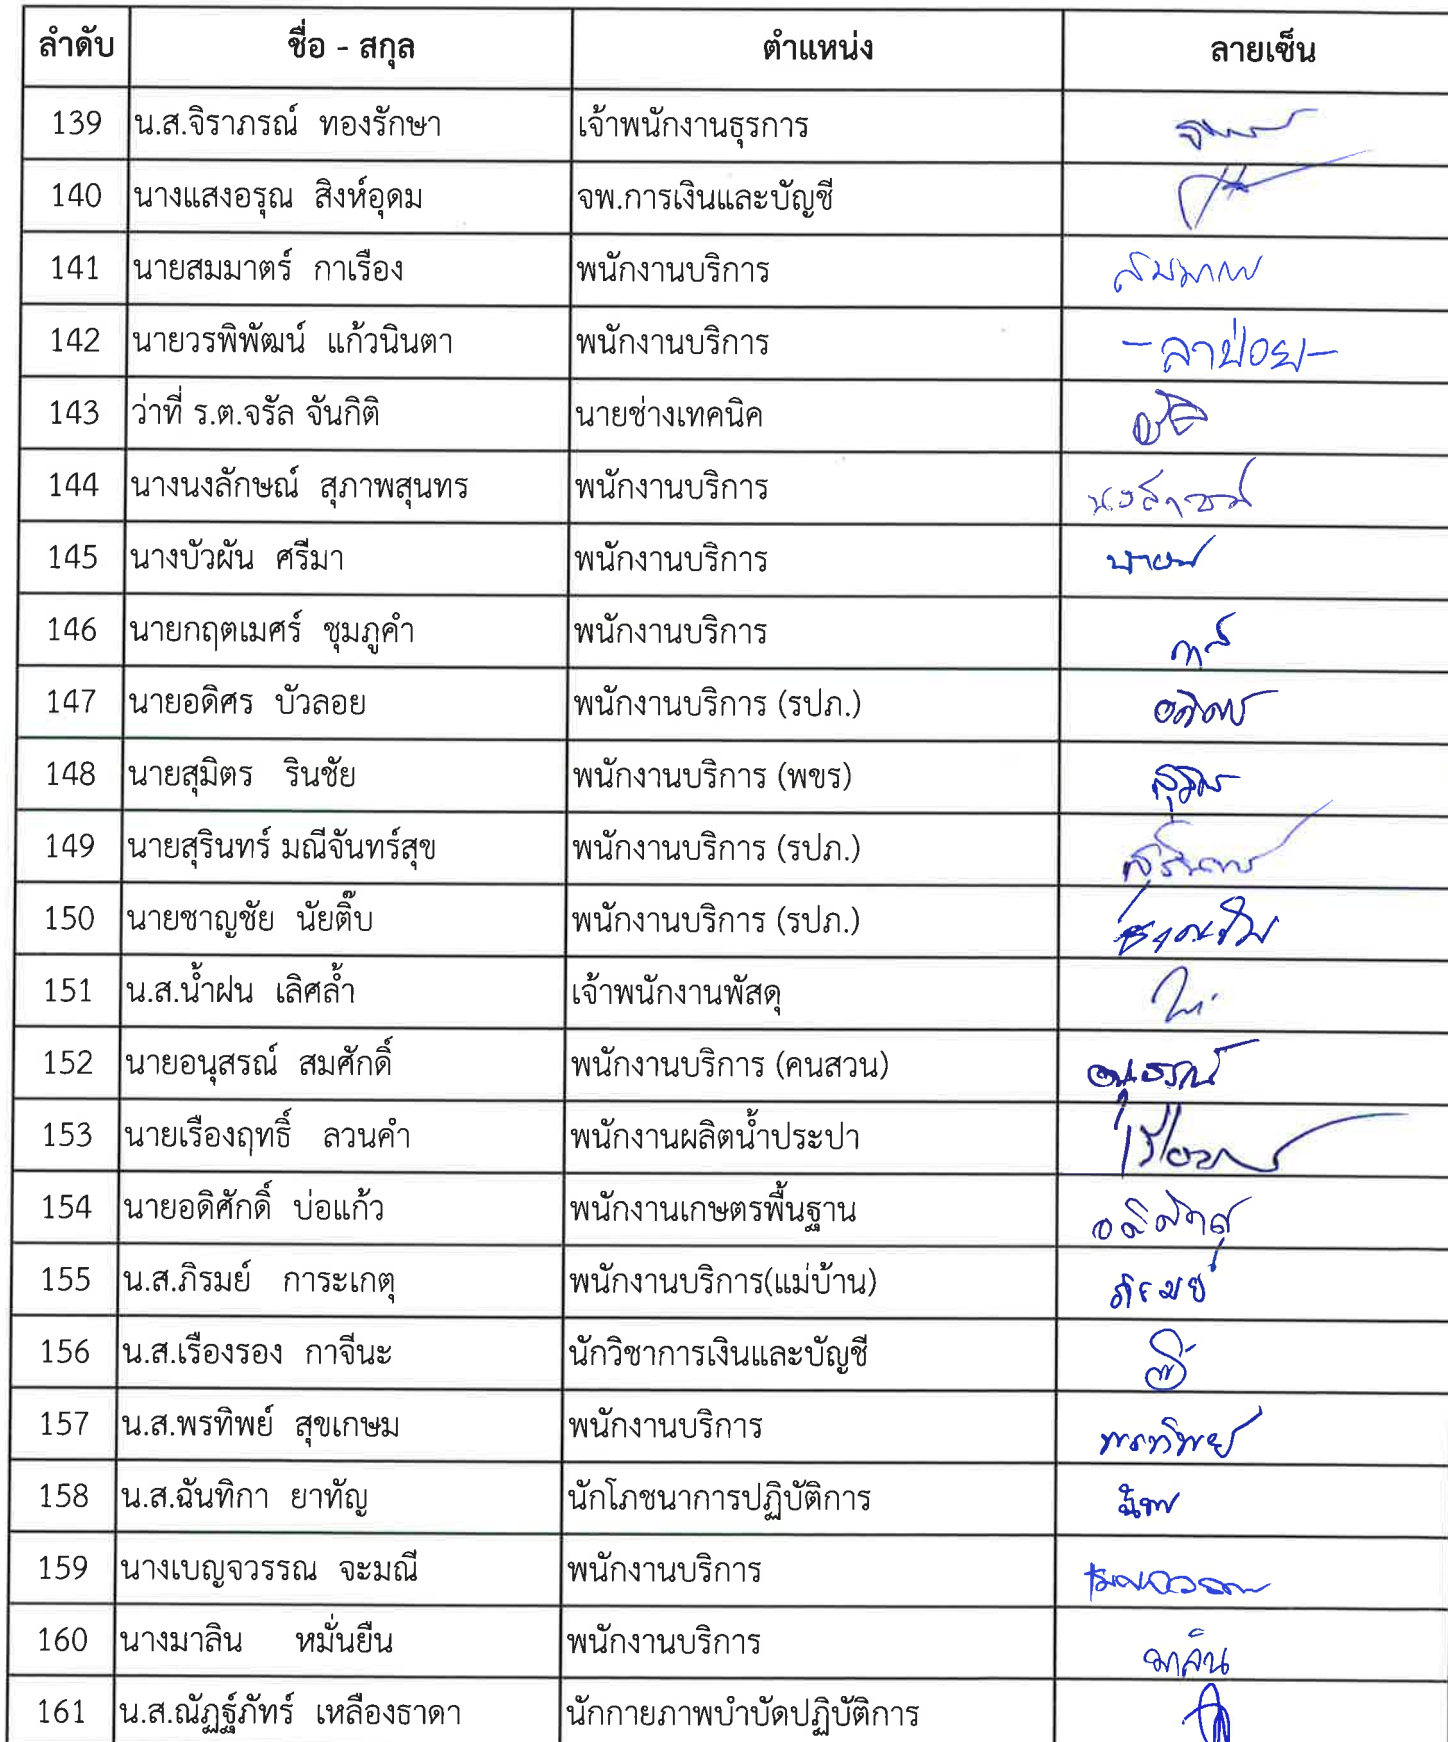 ลำดับ ชื่อ - สกุล ตำแหน่ง ลายเซ็น
139 น.ส.จิราภรณ์ ทองรักษา เจ้าพนักงานธุรการ
140 นางแสงอรุณ สิงห์อุดม จพ.การเงินและบัญชี
141 นายสมมาตร์ กาเรือง พนักงานบริการ
142 นายวรพิพัฒน์ แก้วนินตา พนักงานบริการ -ลาป่วย-
143 ว่าที่ ร.ต.จรัล จันกิติ นายช่างเทคนิค
144 นางนงลักษณ์ สุภาพสุนทร พนักงานบริการ
145 นางบัวผัน ศรีมา พนักงานบริการ
146 นายกฤตเมศร์ ชุมภูคำ พนักงานบริการ
147 นายอดิศร บัวลอย พนักงานบริการ (รปภ.) อดิศร
148 นายสุมิตร รินชัย พนักงานบริการ (พขร)
149 นายสุรินทร์ มณีจันทร์สุข พนักงานบริการ (รปภ.) สุรินทร์
150 นายชาญชัย นัยติ๊บ พนักงานบริการ (รปภ.) ชาญชัย
151 น.ส.น้ำฝน เลิศล้ำ เจ้าพนักงานพัสดุ
152 นายอนุสรณ์ สมศักดิ์ พนักงานบริการ (คนสวน) อนุสรณ์
153 นายเรืองฤทธิ์ ลวนคำ พนักงานผลิตน้ำประปา
154 นายอดิศักดิ์ บ่อแก้ว พนักงานเกษตรพื้นฐาน อดิศักดิ์
155 น.ส.ภิรมย์ การะเกตุ พนักงานบริการ(แม่บ้าน) ภิรมย์
156 น.ส.เรืองรอง กาจีนะ นักวิชาการเงินและบัญชี
157 น.ส.พรทิพย์ สุขเกษม พนักงานบริการ พรทิพย์
158 น.ส.ฉันทิกา ยาทัญ นักโภชนาการปฏิบัติการ
159 นางเบญจวรรณ จะมณี พนักงานบริการ เบญจวรรณ
160 นางมาลิน หมั่นยืน พนักงานบริการ มาลิน
161 น.ส.ณัฏฐ์ภัทร์ เหลืองธาดา นักกายภาพบำบัดปฏิบัติการ